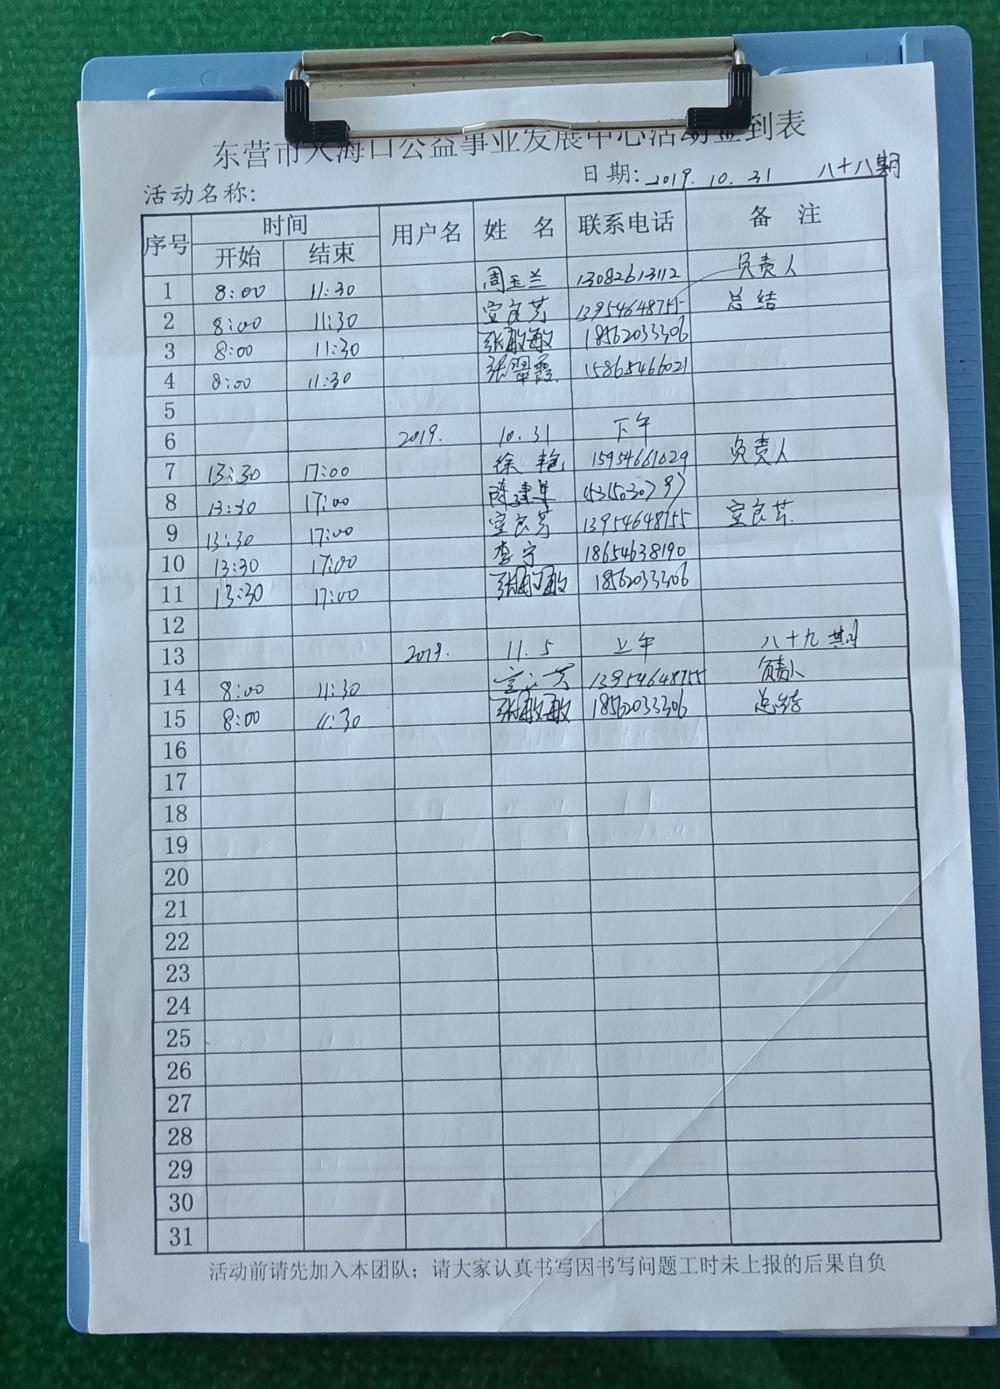 东营市大海口公益事业发展中心活动签到表
活动名称: 日期: 2019. 10. 31 八十八期
序号 时间 用户名 姓 名 联系电话 备 注
开始 结束
1 8:00 11:30 周玉兰 13082613112 负责人
2 8:00 11:30 宣良芳 13954648755 总结
3 8:00 11:30 张敏敏 18562033306
4 8:00 11:30 张翠霞 15865466021
5
6 2019. 10.31 下午
7 13:30 17:00 徐艳 15954661029 负责人
8 13:30 17:00 陈建
9 13:30 17:00 宣良芳 13954648755 宣良芳
10 13:30 17:00 李宁 18654638190
11 13:30 17:00 张敏敏 18562033306
12
13 2019. 11.5 上午 八十九期
14 8:00 11:30 13954648755 负责人
15 8:00 11:30 张敏敏 18562033306 总结
16
17
18
19
20
21
22
23
24
25
26
27
28
29
30
31
活动前请先加入本团队；请大家认真书写因书写问题工时未上报的后果自负